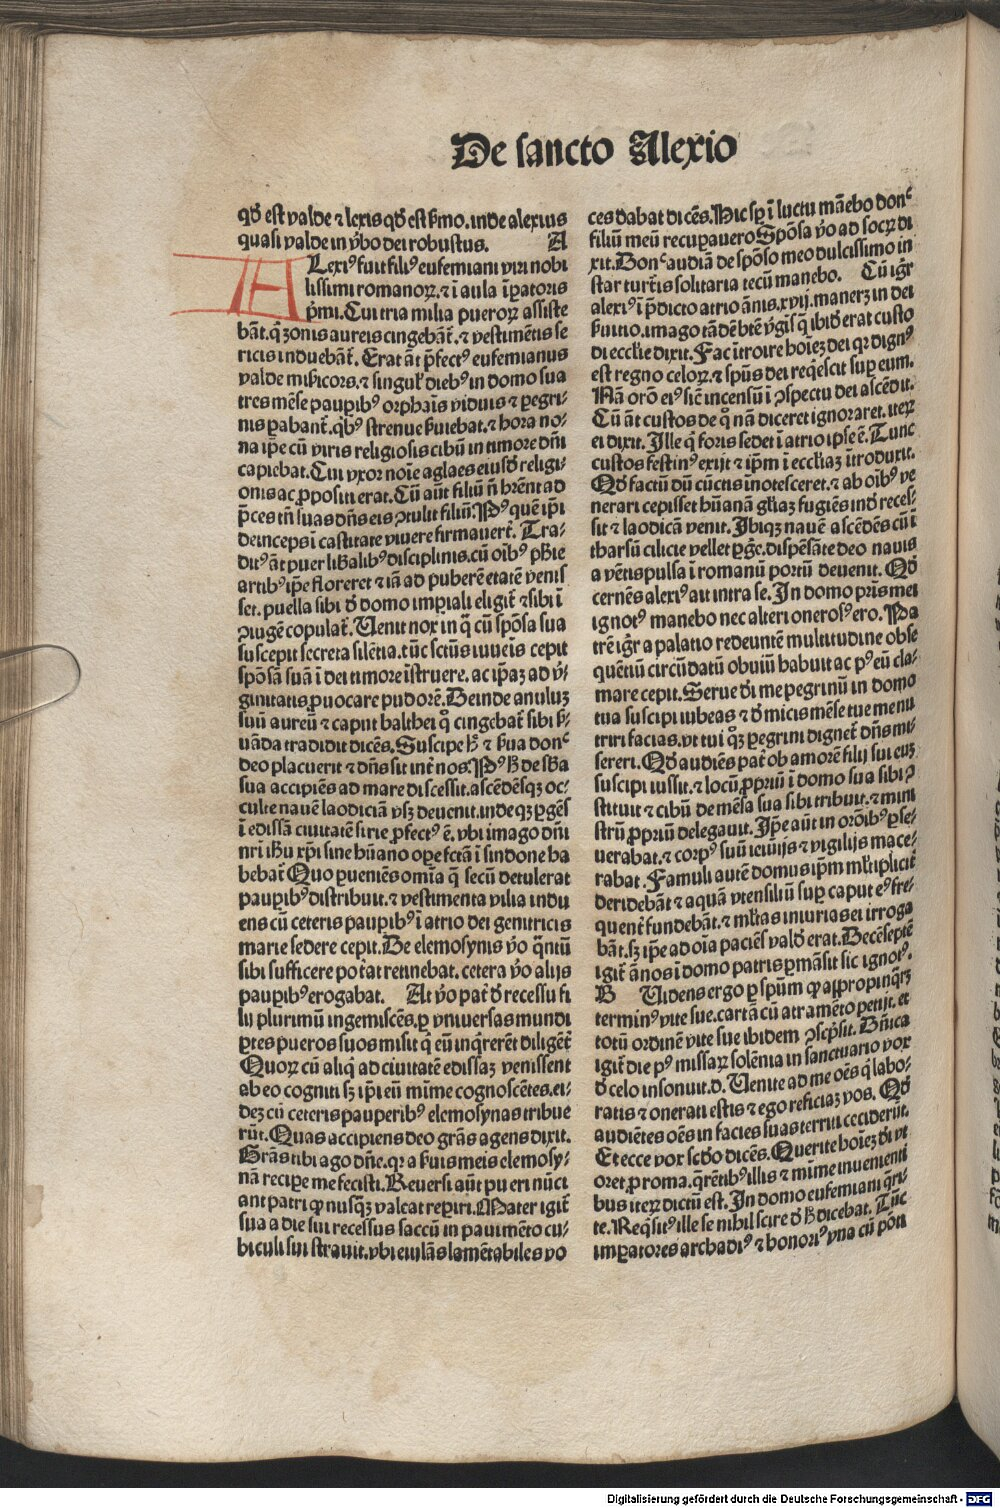 De sancto Alexio
qđ est valde ⁊ lexis qđ est ẜmo. inde alexius
quasi valde in v̉bo dei robustus. A
ALexiꝰ fuit filiꝰ eufemiani viri nobi
lissimi romanoꝝ. ⁊ ī aula īꝑatoris
p̄mi. Cui tria milia pueroꝝ assiste
bāt. q̄ zonis aureis cingebāt̄. ⁊ vestimētis se
ricis induebāt̄. Erat āt p̄fectꝰ eufemianus
valde miẜicors. ⁊ singul̓ diebꝰ in domo sua
tres mēse pauꝑibꝰ orphaīs viduis ⁊ ꝑegri-
nis ꝑabant̄. qb̓ꝰ strenue ẜuiebat. ⁊ hora no-
na ip̄e cū viris religiosis cibū in timore dn̄i
capiebat. Cui vxor noīe aglaes eiusđ religi-
onis ac ꝓpositi erat. Cū aūt filiū n̄ hr̄ent ad
p̄ces tn̄ suas dn̄s eis ꝯtulit filiū. Pꝰ quē ip̄i
deinceps ī castitate viuere firmauert̄. Tra-
ditꝰ āt puer liƀalibꝰ disciplinis. cū oīb̓ꝰ phīe
artibꝰ ip̄e floreret ⁊ iā ad puberē etatē venis
set. puella sibi đ domo imꝑiali eligit̄ ⁊ sibi ī
ꝯiugē copulat̄. Uenit nox in q̄ cū spōsa sua
suscepit secreta silētia. tūc sct̄us iuueīs cepit
spōsā suā ī dei timore īstruere. ac ip̄aꝫ ad v̓-
ginitatis ꝓuocare pudorē. Deinde anuluꝫ
suū aureū ⁊ caput balthei qͦ cingebat̄ sibi ẜ-
uāda tradidit dicēs. Suscipe ħ ⁊ ẜua donͨ
deo placuerit ⁊ dn̄s sit int̄ nos. Pꝰ ħ de sƀa
sua accipiēs ad mare discessit. ascēdēsqꝫ oc-
culte nauē laodiciā vsꝫ deuenit. indeqꝫ ꝑgēs
ī edissā ciuitatē sirie ꝓfectꝰ ē. vbi imago dn̄i
nr̄i iħu xp̄i sine hūano ope fctā ī sindone ha
bebat̄ Quo ꝑueniēs omīa q̄ secū detulerat
pauꝑibꝰ distribuit. ⁊ vestimenta vilia indu
ens cū ceteris pauꝑibꝰ ī atrio dei genitricis
marie sedere cepit. De elemosynis v̓o q̄ntū
sibi sufficere pot̓at retinebat. cetera v̓o alijs
pauꝑibꝰ erogabat. At v̓o pat̓ đ recessu fi
lij plurimū ingemiscēs. ꝑ vniuersas mundi
ꝑtes pueros suos misit q̇ eū inq̇rerēt diligēt̓
Quoꝝ cū aliq̇ ad ciuitatē edissaꝫ venissent
ab eo cogniti sꝫ ip̄i eū mīme cognoscētes. ei-
dēꝫ cū ceteris pauperibꝰ elemosynas tribue
rūt. Quas accipiens deo gr̄as agens dixit.
Gr̄as tibi ago dn̄e. qꝛ a ẜuis meis elemosy-
nā recipe me fecisti. Reuersi aūt pueri nūci
ant patri ꝙ nusqꝫ valeat reꝑiri. Mater igit̄
sua a die sui recessus saccū in pauimēto cu-
biculi sui strauit. vbi eiulās lamētabiles vo
ces dabat dicēs. Hic sꝑ ī luctu manebo donͨ
filiū meū recuꝑauero Spōsa v̓o ad socꝝ di
xit. Donͨ audiā de spōso meo dulcissimo in
star turt̓is solitaria tecū manebo. Cū igr̄
alexiꝰ ī p̄dicto atrio ānis. xvij. manerꝫ in dei
ẜuitio. imago tādē btē v̓gīs q̄ ibiđ erat custo
di ecclīe dixit. Fac ītroire hoīeꝫ dei qꝛ dignꝰ
est regno celoꝝ. ⁊ spūs dei req̇escit suꝑ eum.
Nā orō eiꝰ sic̄ incensū ī ꝯspectu dei ascēdit.
Cū āt custos de qͦ nā diceret ignoraret. iteꝝ
ei dixit. Ille q̇ foris sedet ī atrio ipse ē. Tunc
custos festinꝰ exijt ⁊ ip̄m ī eccliaꝫ ītroduxit.
Qđ factū dū cūctis īnotesceret. ⁊ ab oīb̓ꝰ ve
nerari cepisset hūanā gl̓iaꝫ fugiēs inđ reces-
sit ⁊ laodicā venit. Ibiqꝫ nauē ascēdēs cū ī
tharsū cilicie vellet ꝑg̓e. dispēsāte deo nauis
a vētis pulsa ī romanū portū deuenit. Qđ
cernēs alexiꝰ ait intra se. In domo pr̄is mei
ignotꝰ manebo nec alteri onerosꝰ ero. Pa
trē igr̄ a palatio redeuntē multitudine obse
quētiū circūdatū obuiū habuit ac pꝰ eū cla-
mare cepit. Serue di me peegrinū in domo
tua suscipi iubeas ⁊ đ micis mēse tue me nu
triri facias. vt tui qͦꝫ ꝑegrini dignet̄ dn̄s mi-
sereri. Qđ audiēs pat̓ ob amorē filij sui euꝫ
suscipi iussit. ⁊ locū ꝓpriū ī domo sua sibi ꝯ
stituit ⁊ cibū de mēsa sua sibi tribuit. ⁊ mini
strū ꝓpriū delegauit. Ip̄e aūt in orōibꝰ ꝑse-
uerabat. ⁊ corpꝰ suū ieiūijs ⁊ vigilijs mace-
rabat. Famuli autē domus ip̄m ml̓tiplicit̓
deridebāt ⁊ aquā vtensiliū suꝑ caput eꝰ fre-
quent̓ fundebāt. ⁊ ml̓tas iniurias ei irroga
bāt. sꝫ ip̄e ad oīa paciēs valđ erat. Decēseptē
igit̄ ānos ī domo patris ꝑmāsit sic ignotꝰ.
B Uidens ergo ꝑ spūm ꝙ appropinq̄rꝫ
terminꝰ vite sue. cartā cū atramēto petijt. et
totū ordinē vite sue ibidem ꝯscp̄sit. Dn̄ica
igit̄ die pꝰ missaꝝ solēnia in sanctuario vox
đ celo insonuit. d. Uenite ad me oēs q̇ labo-
ratis ⁊ onerati estis ⁊ ego reficiaꝫ vos. Qđ
audiētes oēs in facies suas territi ceciderūt.
Et ecce vox sc̄đo dicēs. Querite hoīeꝫ di vt
oret ꝓ roma. q̄rētibꝰ illis ⁊ mīme inuenienti
bus iteꝝ dictū est. In domo eufemiani q̄ri-
te. Req̇sitꝰ ille se nihil scire đ ħ dicebat. Tūc
imꝑatores archadiꝰ ⁊ honoriꝰ vna cū pōti
Digitalisierung gefördert durch die Deutsche Forschungsgemeinschaft - DFG